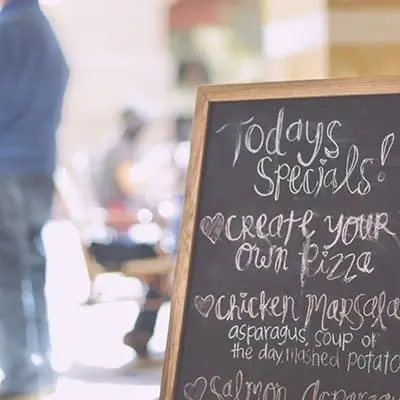 Todays
Specials!
♡ CREATE YOUR
OWN PIZZA
♡ CHICKEN MARSALA
asparagus, soup of
the day, mashed potato
♡ Salmon